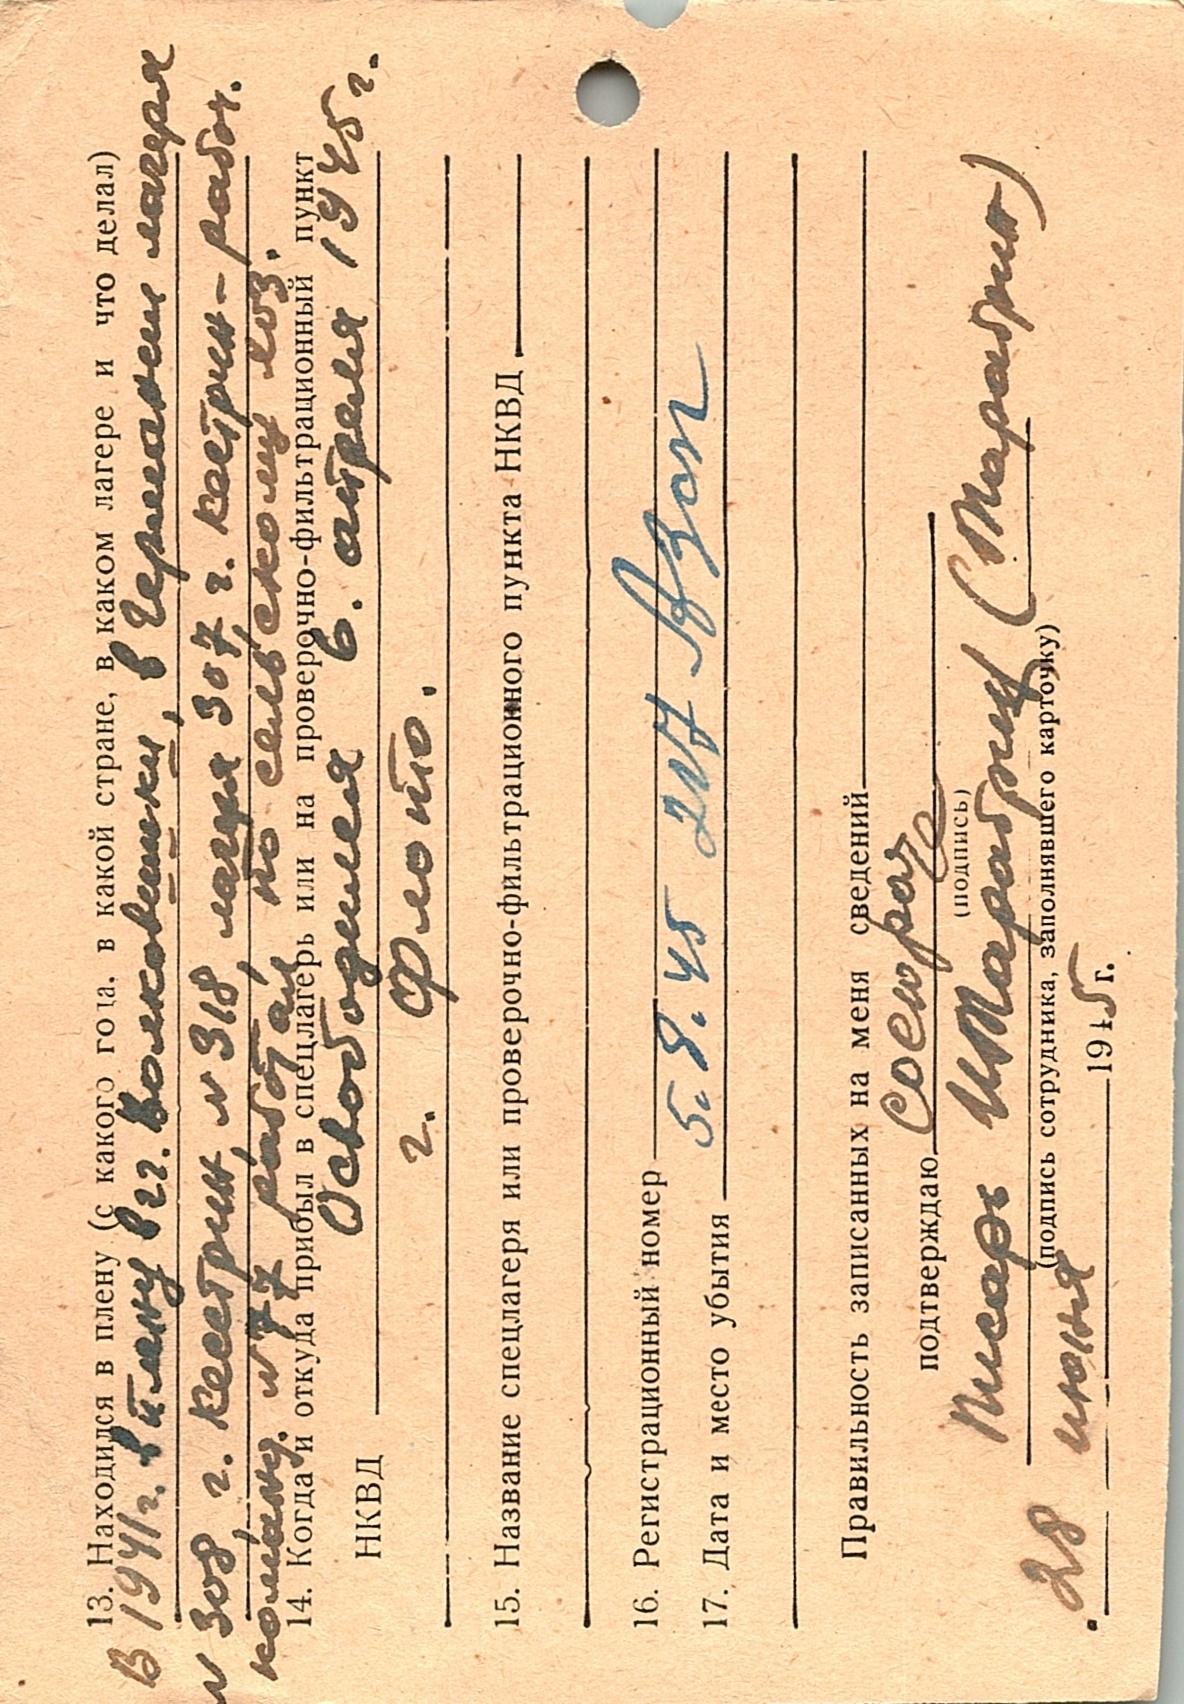 13. Находился в плену (с какого года, в какой стране, в каком лагере и что делал)
В 1941 г. в плену в г. Волковышки, в Германии лагеря
№ 308 г. Кестрин, № 318, лагеря 307, г. Кестрин – рабоч.
команд. № 77 работал по сельскому хоз.
14. Когда и откуда прибыл в спецлагерь или на проверочно-фильтрационный пункт
НКВД Освободился 6. апреля 1945 г.
г. Флото.
15. Название спецлагеря или проверочно-фильтрационного пункта НКВД
16. Регистрационный номер
17. Дата и место убытия 5. 8. 45 217 АЗсп
Правильность записанных на меня сведений
подтверждаю
(подпись)
Писарь
(подпись сотрудника, заполнявшего карточку)
28 июня 1945 г.